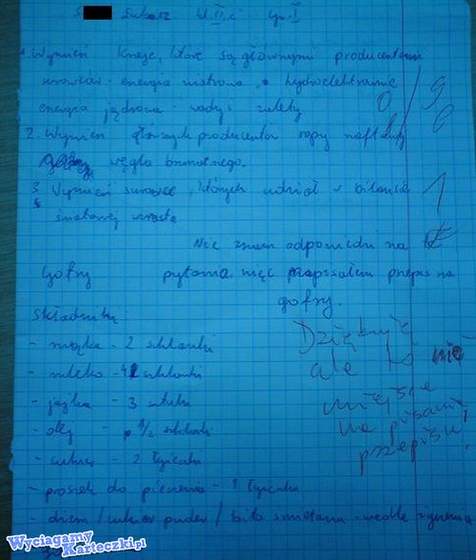 Łukasz kl. II c gr. I
1. Wymień kraje, które są głównymi producentami
surowców - energia wiatrowa, hydroelektrownie
energia jądrowa - wady i zalety
0/9
2. Wymień głównych producentów ropy naftowej
węgla brunatnego.
3. Wymień surowce, których udział w bilansie
światowej wzrasta
1
Nie znam odpowiedzi na te
pytania więc napisałem przepis na
gofry.
Gofry
Składniki:
- mąka - 2 szklanki
- mleko - szklanki
- jajka - 3 sztuki
- olej - 1/2 szklanki
- cukier - 2 łyżeczki
- proszek do pieczenia - 1 łyżeczka
- dżem / cukier puder / bita śmietana - wedle
Dziękuję
ale to nie
miejsce
na pisanie
przepisu
Wyciagamy
Karteczki.pl